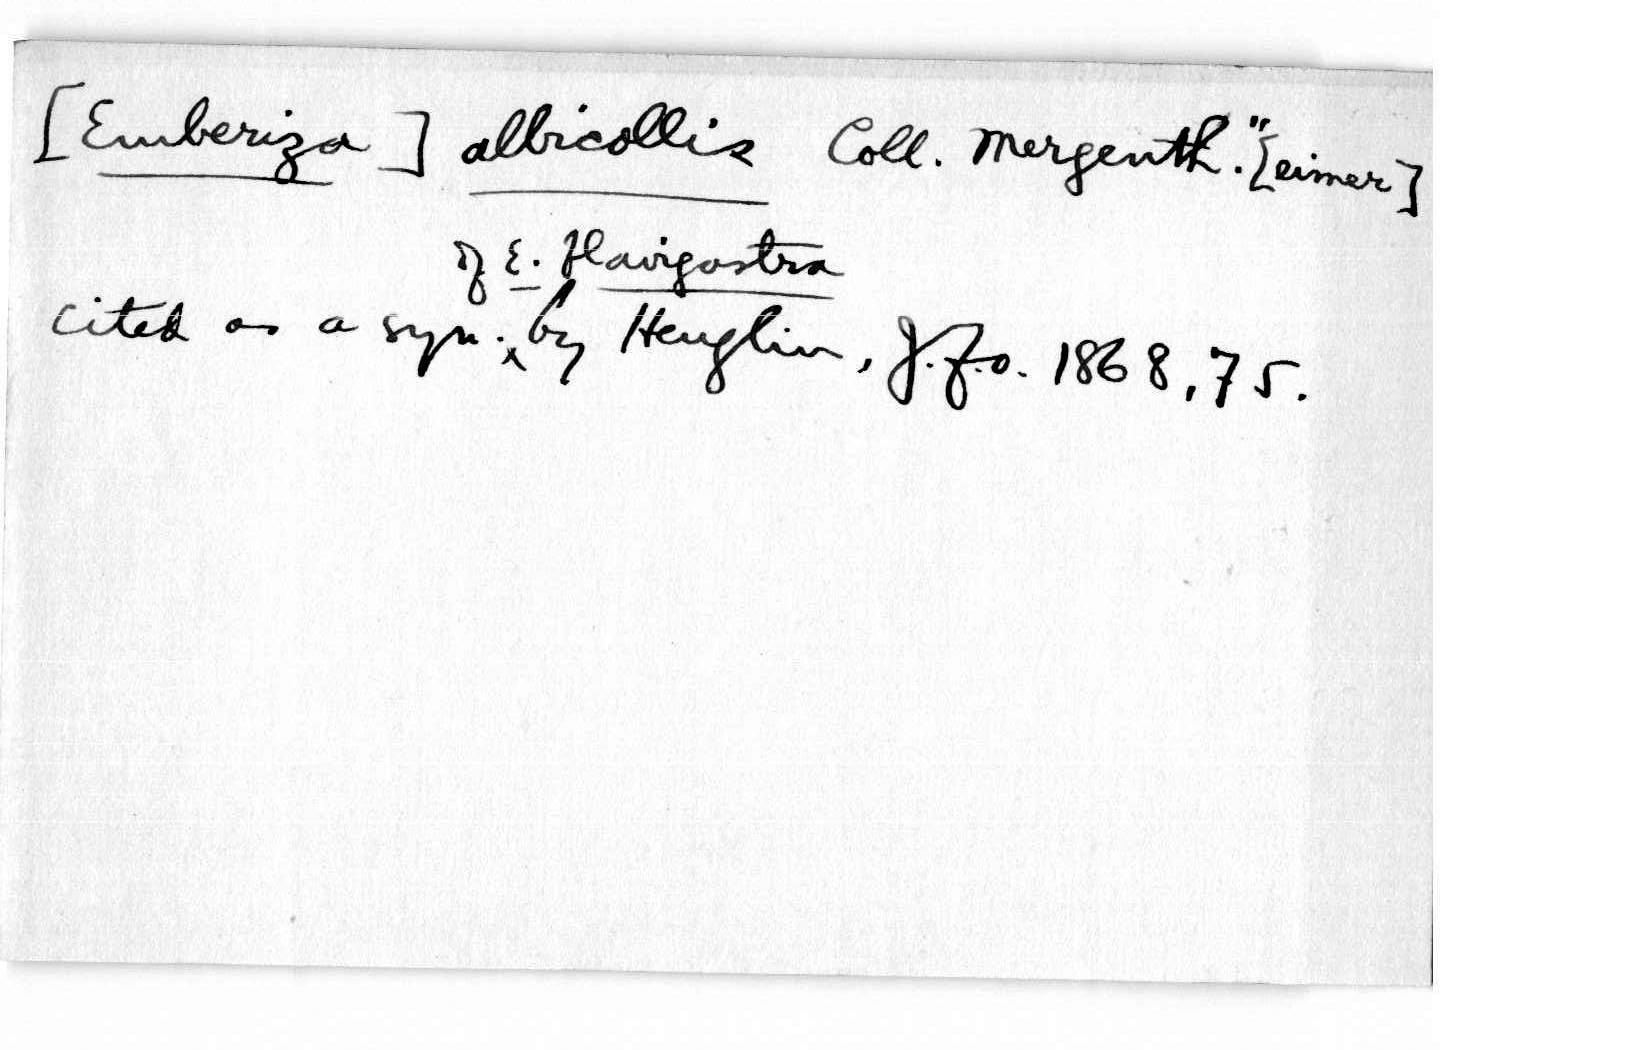 [Emberiza] albicollis Coll. Mergenth." [eimer]
of E. flavigastra
cited as a syn. ‸ by Heuglin, J.f.o. 1868, 75.